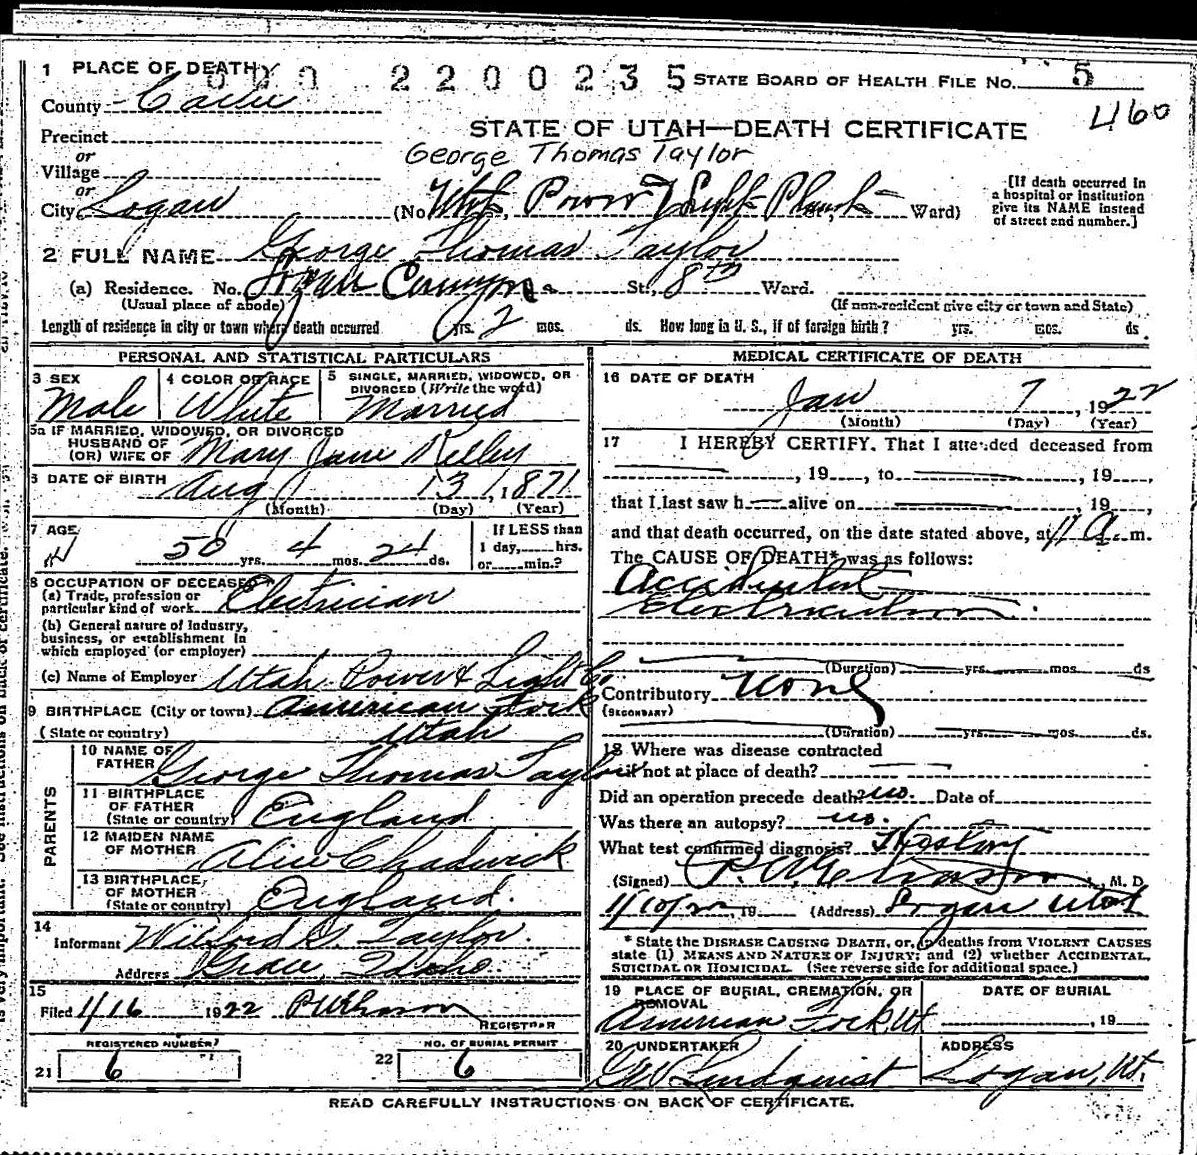 1 PLACE OF DEATH 2200235 STATE BOARD OF HEALTH FILE NO. 5
County Cache 460
Precinct STATE OF UTAH—DEATH CERTIFICATE
or George Thomas Taylor
Village
or
City Logan (No. Utah Power & Light Plant Ward)
[If death occurred in
a hospital or institution
give its NAME instead
of street and number.]
2 FULL NAME George Thomas Taylor
(a) Residence. No. Logan Canyon St., 8th Ward.
(Usual place of abode) (If non-resident give city or town and State)
Length of residence in city or town where death occurred yrs. 2 mos. ds. How long in U. S., if of foreign birth? yrs. mos. ds
PERSONAL AND STATISTICAL PARTICULARS
3 SEX 4 COLOR OR RACE 5 SINGLE, MARRIED, WIDOWED, OR
DIVORCED (Write the word)
Male White Married
5a IF MARRIED, WIDOWED, OR DIVORCED
HUSBAND OF
(OR) WIFE OF Mary Jane Kelley
6 DATE OF BIRTH Aug 13, 1871
(Month) (Day) (Year)
7 AGE If LESS than
50 yrs. 4 mos. 24 ds. 1 day, hrs.
or min.?
8 OCCUPATION OF DECEASED
(a) Trade, profession or
particular kind of work Electrician
(b) General nature of Industry,
business, or establishment in
which employed (or employer)
(c) Name of Employer Utah Power & Light Co
9 BIRTHPLACE (City or town) American Fork
(State or country) Utah
PARENTS
10 NAME OF
FATHER George Thomas Taylor
11 BIRTHPLACE
OF FATHER
(State or country) England
12 MAIDEN NAME
OF MOTHER Alice Chadwick
13 BIRTHPLACE
OF MOTHER
(State or country) England.
14
Informant Wilford G. Taylor.
Address Grace, Idaho.
15
Filed 1/16 1922
REGISTRAR
REGISTERED NUMBER NO. OF BURIAL PERMIT
21 6 22 6
MEDICAL CERTIFICATE OF DEATH
16 DATE OF DEATH
Jan 7, 1922
(Month) (Day) (Year)
17 I HEREBY CERTIFY. That I attended deceased from
, 19 , to , 19 ,
that I last saw h alive on , 19 ,
and that death occurred, on the date stated above, at 11 A. m.
The CAUSE OF DEATH* was as follows:
Accidental
Electricution.
(Duration) yrs. mos. ds
Contributory None
(SECONDARY)
(Duration) yrs. mos. ds.
18 Where was disease contracted
if not at place of death?
Did an operation precede death? no. Date of
Was there an autopsy? no.
What test confirmed diagnosis? History
(Signed) M. D.
1/10/22, 19 (Address) Logan Utah
* State the DISEASE CAUSING DEATH, or, in deaths from VIOLENT CAUSES
state (1) MEANS AND NATURE OF INJURY; and (2) whether ACCIDENTAL,
SUICIDAL OR HOMICIDAL. (See reverse side for additional space.)
19 PLACE OF BURIAL, CREMATION, OR
REMOVAL DATE OF BURIAL
American Fork Ut , 19
20 UNDERTAKER ADDRESS
GW Lindquist Logan, Ut.
READ CAREFULLY INSTRUCTIONS ON BACK OF CERTIFICATE.